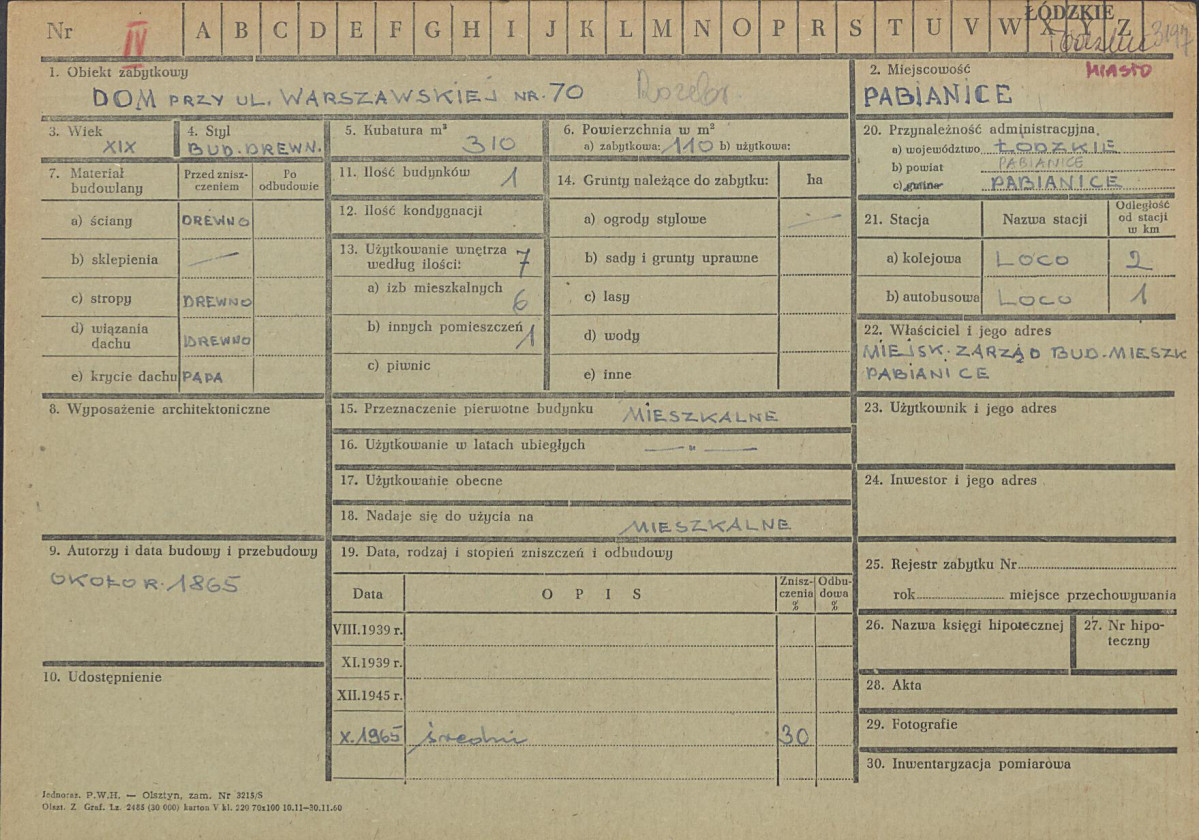 Nr IV A B C D E F G H I J K L M N O P R S T U V W X Y Z ŁÓDZKIE 3197
1. Obiekt zabytkowy
DOM PRZY UL. WARSZAWSKIEJ NR. 70 Rozebr.
2. Miejscowość MIASTO
PABIANICE
3. Wiek
XIX
4. Styl
BUD. DREWN.
5. Kubatura m³
310
6. Powierzchnia w m²
a) zabytkowa: 110 b) użytkowa:
20. Przynależność administracyjna
a) województwo ŁODZKIE
b) powiat PABIANICE
c) gmina PABIANICE
7. Materiał budowlany
Przed zniszczeniem
Po odbudowie
a) ściany DREWNO
b) sklepienia —
c) stropy DREWNO
d) wiązania dachu DREWNO
e) krycie dachu PAPA
11. Ilość budynków 1
12. Ilość kondygnacji
13. Użytkowanie wnętrza według ilości: 7
a) izb mieszkalnych 6
b) innych pomieszczeń 1
c) piwnic
14. Grunty należące do zabytku: ha
a) ogrody stylowe —
b) sady i grunty uprawne
c) lasy
d) wody
e) inne
21. Stacja Nazwa stacji Odległość od stacji w km
a) kolejowa LOCO 2
b) autobusowa LOCO 1
22. Właściciel i jego adres
MIEJSK. ZARZĄD BUD. MIESZK
PABIANICE
8. Wyposażenie architektoniczne
15. Przeznaczenie pierwotne budynku MIESZKALNE
16. Użytkowanie w latach ubiegłych — „ —
17. Użytkowanie obecne
18. Nadaje się do użycia na MIESZKALNE
23. Użytkownik i jego adres
24. Inwestor i jego adres
9. Autorzy i data budowy i przebudowy
OKOŁO R. 1865
10. Udostępnienie
19. Data, rodzaj i stopień zniszczeń i odbudowy
Data OPIS Zniszczenia % Odbudowa %
VIII.1939 r.
XI.1939 r.
XII.1945 r.
X.1965 średni 30
25. Rejestr zabytku Nr
rok miejsce przechowywania
26. Nazwa księgi hipotecznej
27. Nr hipoteczny
28. Akta
29. Fotografie
30. Inwentaryzacja pomiarowa
Jednoraz. P.W.H. — Olsztyn, zam. Nr 3215/S
Olszt. Z. Graf. Lz. 2485 (30 000) karton V kl. 220 70x100 10.11—30.11.60